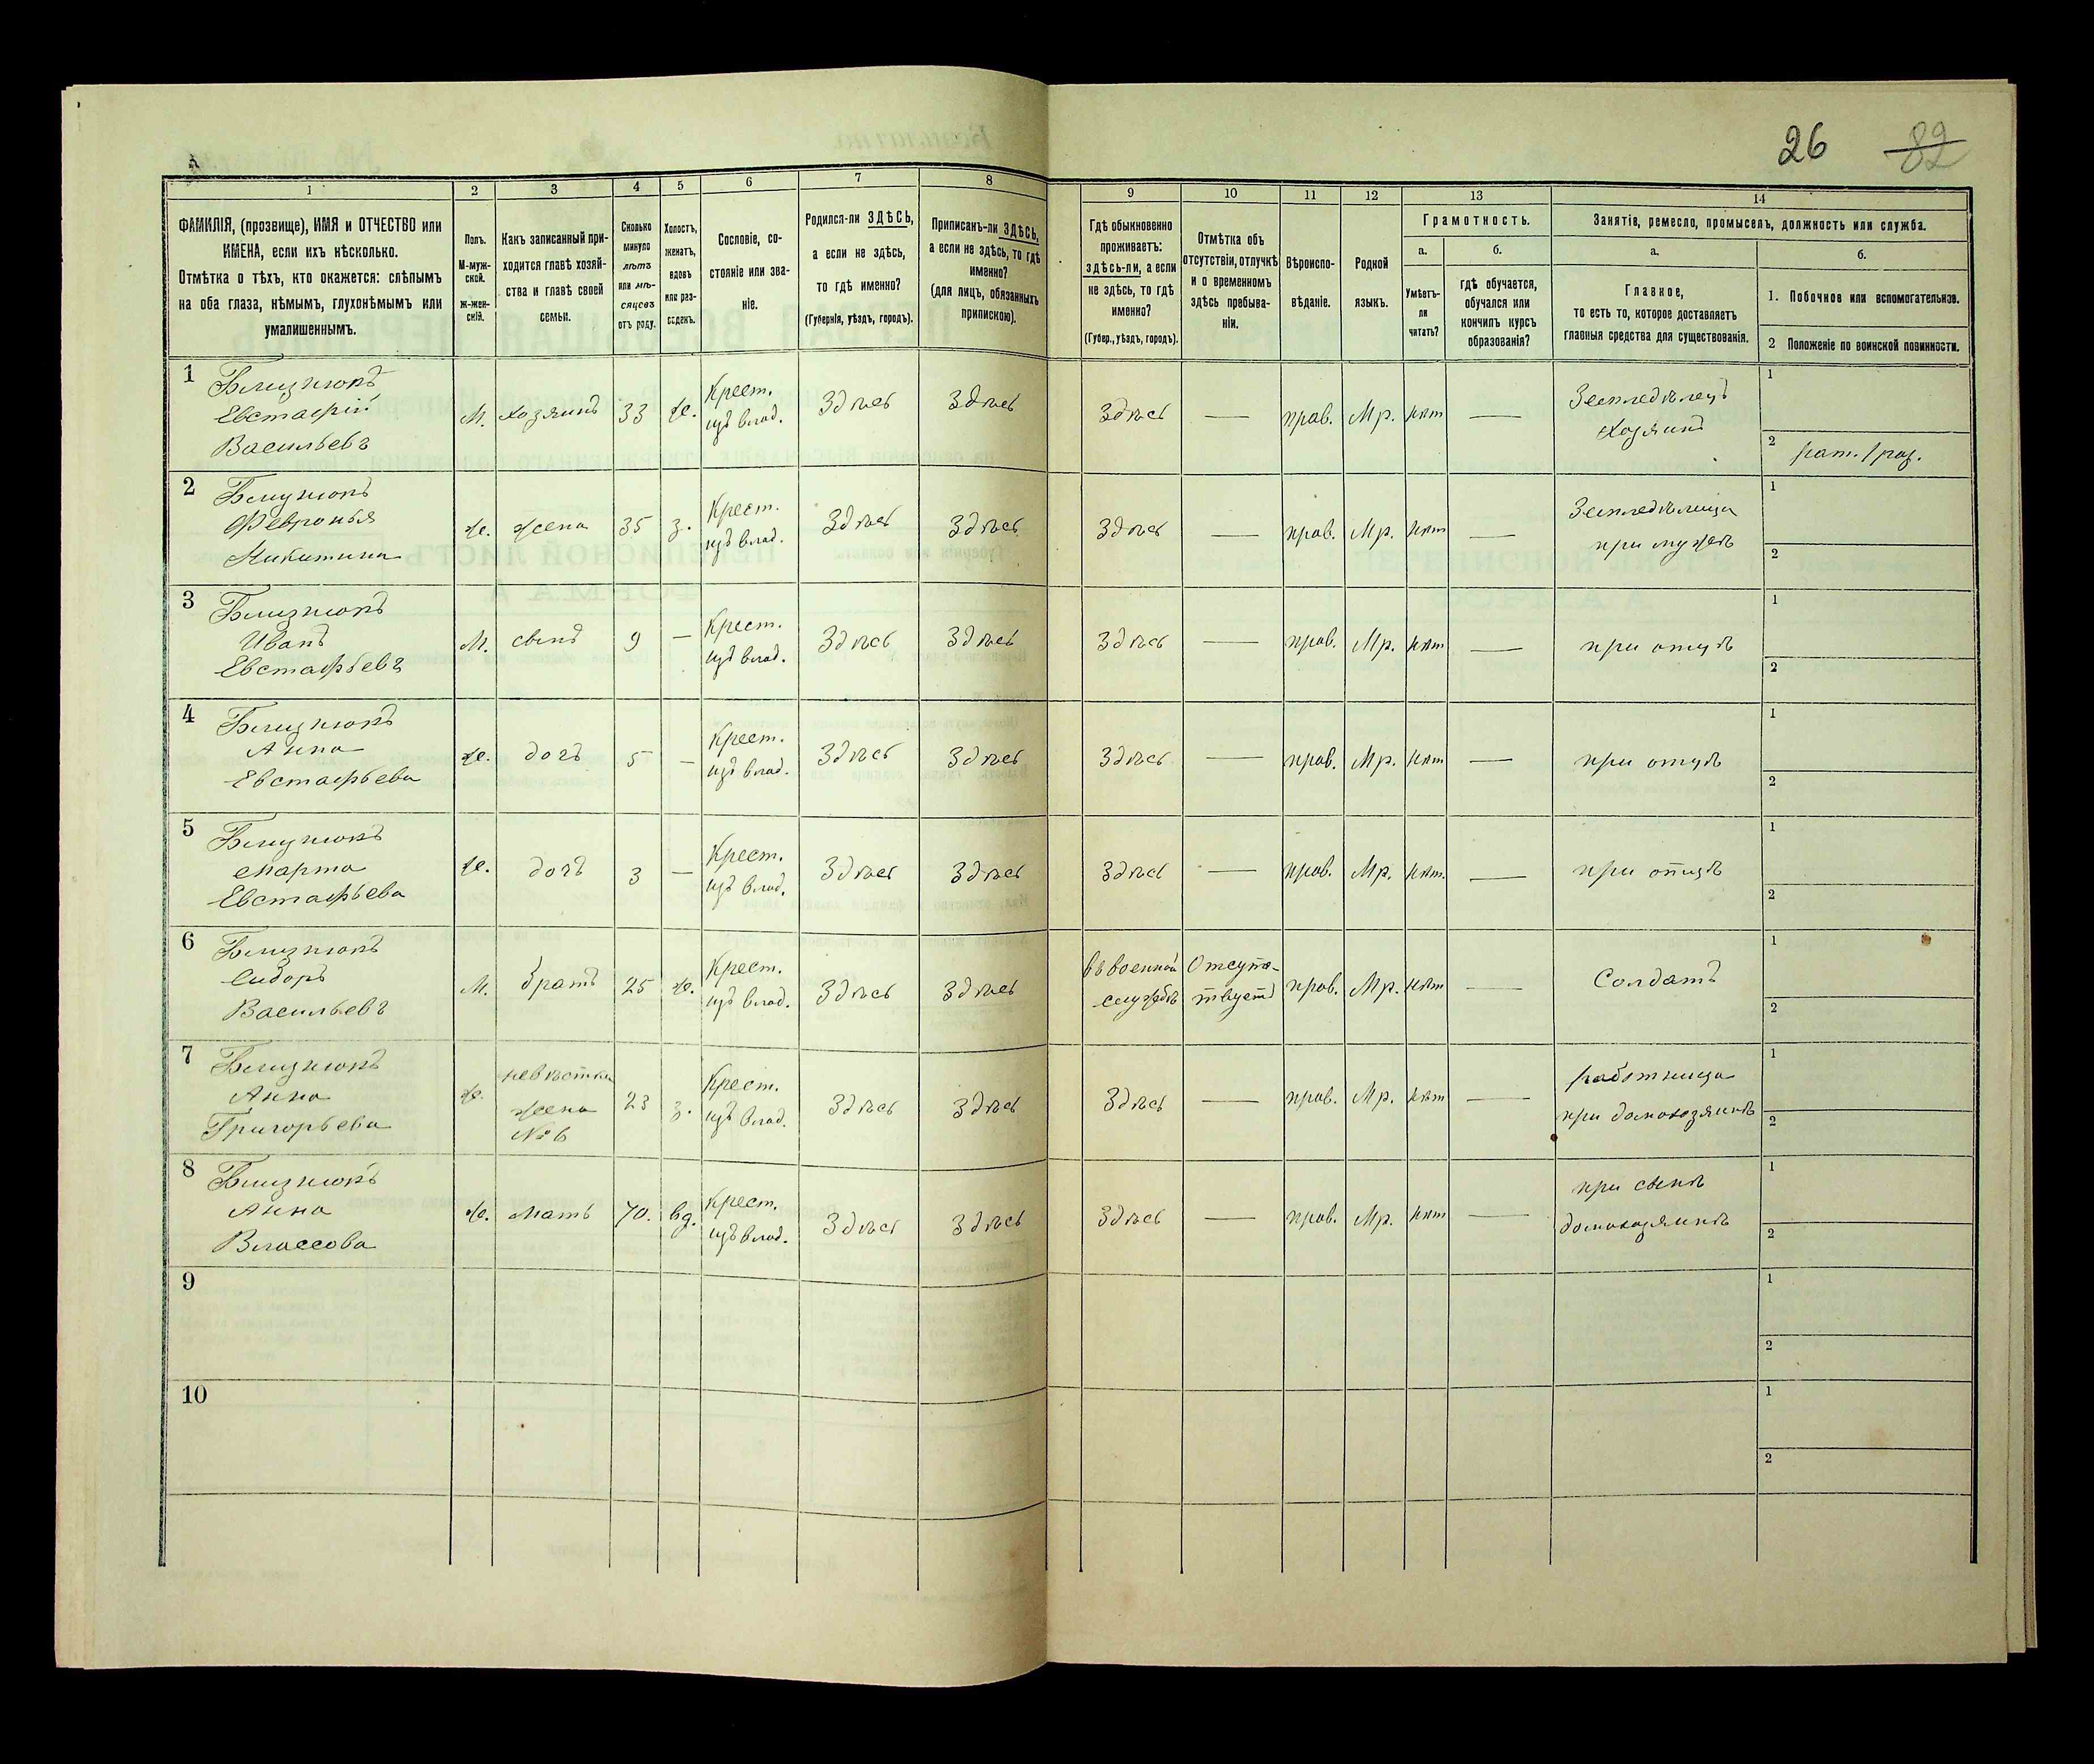 26 82
1 2 3 4 5 6 7 8 9 10 11 12 13 14
ФАМИЛІЯ, (прозвище), ИМЯ и ОТЧЕСТВО или ИМЕНА, если ихъ нѣсколько.
Отмѣтка о тѣхъ, кто окажется: слѣпымъ на оба глаза, нѣмымъ, глухонѣмымъ или умалишеннымъ.
Полъ. М-мужской. ж-женскій.
Какъ записанный приходится главѣ хозяйства и главѣ своей семьи.
Сколько минуло лѣтъ или мѣсяцевъ отъ роду.
Холостъ, женатъ, вдовъ или разведенъ.
Сословіе, состояніе или званіе.
Родился-ли ЗДѢСЬ, а если не здѣсь, то гдѣ именно? (Губернія, уѣздъ, городъ).
Приписанъ-ли ЗДѢСЬ, а если не здѣсь, то гдѣ именно? (для лицъ, обязанныхъ припискою).
Гдѣ обыкновенно проживаетъ: здѣсь-ли, а если не здѣсь, то гдѣ именно? (Губер., уѣздъ, городъ).
Отмѣтка объ отсутствіи, отлучкѣ и о временномъ здѣсь пребываніи.
Вѣроисповѣданіе.
Родной языкъ.
Грамотность.
а. Умѣетъ-ли читать?
б. гдѣ обучается, обучался или кончилъ курсъ образованія?
Занятіе, ремесло, промыселъ, должность или служба.
а. Главное, то есть то, которое доставляетъ главныя средства для существованія.
б. 1. Побочное или вспомогательное.
2 Положеніе по воинской повинности.
1 Близнюкъ Евстафій Васильевъ М. хозяинъ 33 ж. Крест. изъ влад. Здѣсь Здѣсь Здѣсь — прав. Мр. нѣт — Земледѣлецъ Хозяинъ 1 2 рат. /раз.
2 Близнюкъ Февронья Никитина ж. жена 35 з. Крест. изъ влад. Здѣсь Здѣсь Здѣсь — прав. Мр. нѣт — Земледѣлица при мужѣ 1 2
3 Близнюкъ Иванъ Евстафьевъ М. сынъ 9 — Крест. изъ влад. Здѣсь Здѣсь Здѣсь — прав. Мр. нѣт — при отцѣ 1 2
4 Близнюкъ Анна Евстафьева ж. дочъ 5 — Крест. изъ влад. Здѣсь Здѣсь Здѣсь — прав. Мр. нѣт — при отцѣ 1 2
5 Близнюкъ Марта Евстафьева ж. дочъ 3 — Крест. изъ влад. Здѣсь Здѣсь Здѣсь — прав. Мр. нѣт. — при отцѣ 1 2
6 Близнюкъ Сидоръ Васильевъ М. братъ 25 ж. Крест. изъ влад. Здѣсь Здѣсь въ военной службѣ Отсутствуетъ прав. Мр. нѣт — Солдатъ 1 2
7 Близнюкъ Анна Григорьева ж. невѣстка жена №6 23 з. Крест. изъ влад. Здѣсь Здѣсь Здѣсь — прав. Мр. нѣт — работница при домохозяинѣ 1 2
8 Близнюкъ Анна Влассова ж. мать 70. вд. Крест. изъ влад. Здѣсь Здѣсь Здѣсь — прав. Мр. нѣт — при сынѣ домохозяинѣ 1 2
9 1 2
10 1 2